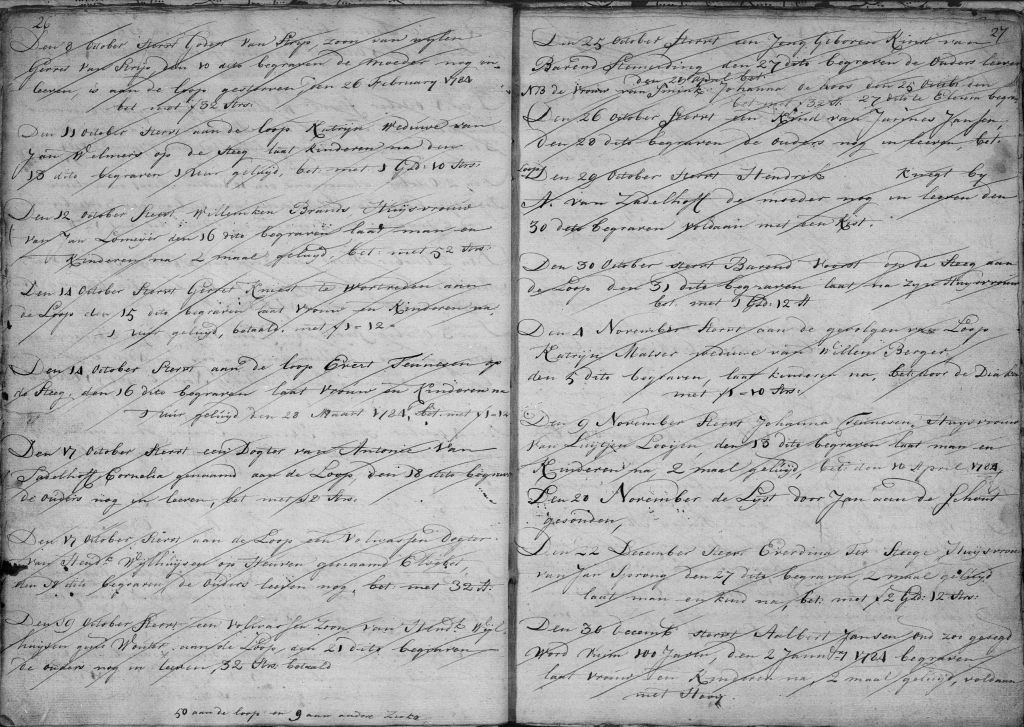 26
Den 8 October Sterft Godert van Strijp, zoon van wylen
Gerrit van Strijp, den 10 dito begraven de Moeder nog in
leeven, is aan de loop gestorven, den 26 February 1784
bet met f 32 Strs.
Den 11 October Sterft aan de loop Katryn Weduwe van
Jan Welmers op de Steeg laat kinderen na den
13 dito begraven 1 uur geluyd, bet: met 1 Gld: 10 Strs:
Den 12 October Sterft Willemken Brands Huysvrouw
van Jan Lomeyer den 16 dito begraven laat man en
Kinderen na 2 maal geluyd, bet: met 52 Strs:
Den 14 October Sterft Gerrit te Wortreden aan
de Loop den 15 dito begraven laat Vrouw en Kinderen na
1 uur geluyd, betaald met f1-12-
Den 14 October Sterft aan de loop Evert Teunissen op
de Steeg, den 16 dito begraven laat Vrouw en Kinderen na
1 uur geluyd den 28 Maart 1784, bet: met f1-12
Den 17 October Sterft een Dogter van Antonie van
Sadelhoff Cornelia genaamd aan de Loop, den 18 dito begraven
de ouders nog in leeven, bet met 32 Strs.
Den 17 October Sterft aan de Loop een Volwassen Dogter
van Hendk Wylhuysen op Heuven genaamd Elsoken,
den dito begraven, de Ouders leeven nog, bet: met 32 St:
Den 19 October Sterft een Volwassen Zoon van Hendk Wyl-
huysen gent Wouter, aan de Loop, den 21 dito begraven
de ouders nog in leeven, 32 Strs betaald
50 aan de loop en 9 aan andre Ziekte
27
Den 25 October Sterft een Jong Geboren Kind van
Barend Stemerding den 27 dito begraven de Ouders leeven
den 28 April bet:
N73 de Vrouw van Johanna de Roos den 25 Octobr en
bet met 32 St. 27 dito te Ellecom begra
Den 26 October Sterft een Kind van Jannes Jansen,
den 28 dito begraven de ouders nog in leeven, bet:
Loops
Den 29 October Sterft Hendrik Knegt by
A. van Zadelhoff de moeder nog in leeven den
30 dito begraven voldaan met een Kist.
Den 30 October sterft Barend Voorst op de Steeg aan
de Loop den 31 dito begraven laat na zyn Huysvrouw
bet. met 1 Gld: 12 St
Den 4 November Sterft aan de gevolgen van Loop
Katryn Matser weduwe van Willem Berger
den 5 dito begraven, laat kinderen na, bet: door de Diakon
met f1-10 Strs:
Den 9 November Sterft Johanna Teunesen, Huysvrouw
van Luytjen Looyen den 13 dito begraven laat man en
Kinderen na 2 maal geluyd, bet: den 10 April 1784,
Den 20 November de Lyst door Jan aan de Schout
gesonden,
Den 22 December Sterft Everdina ter Steege Huysvrouw
van Jan Sprong den 27 dito begraven 2 maal geluyd
laat man en kind na, bet: met f2 Gld: 12 Strs:
Den 30 Decemb sterft Aalbert Jansen oud zoo gesegd
word ruim 100 Jaren, den 2 Januarij 1784 begraven
laat Vrouw en Kinderen na, 2 maal geluyd, voldaan
met Hooy.